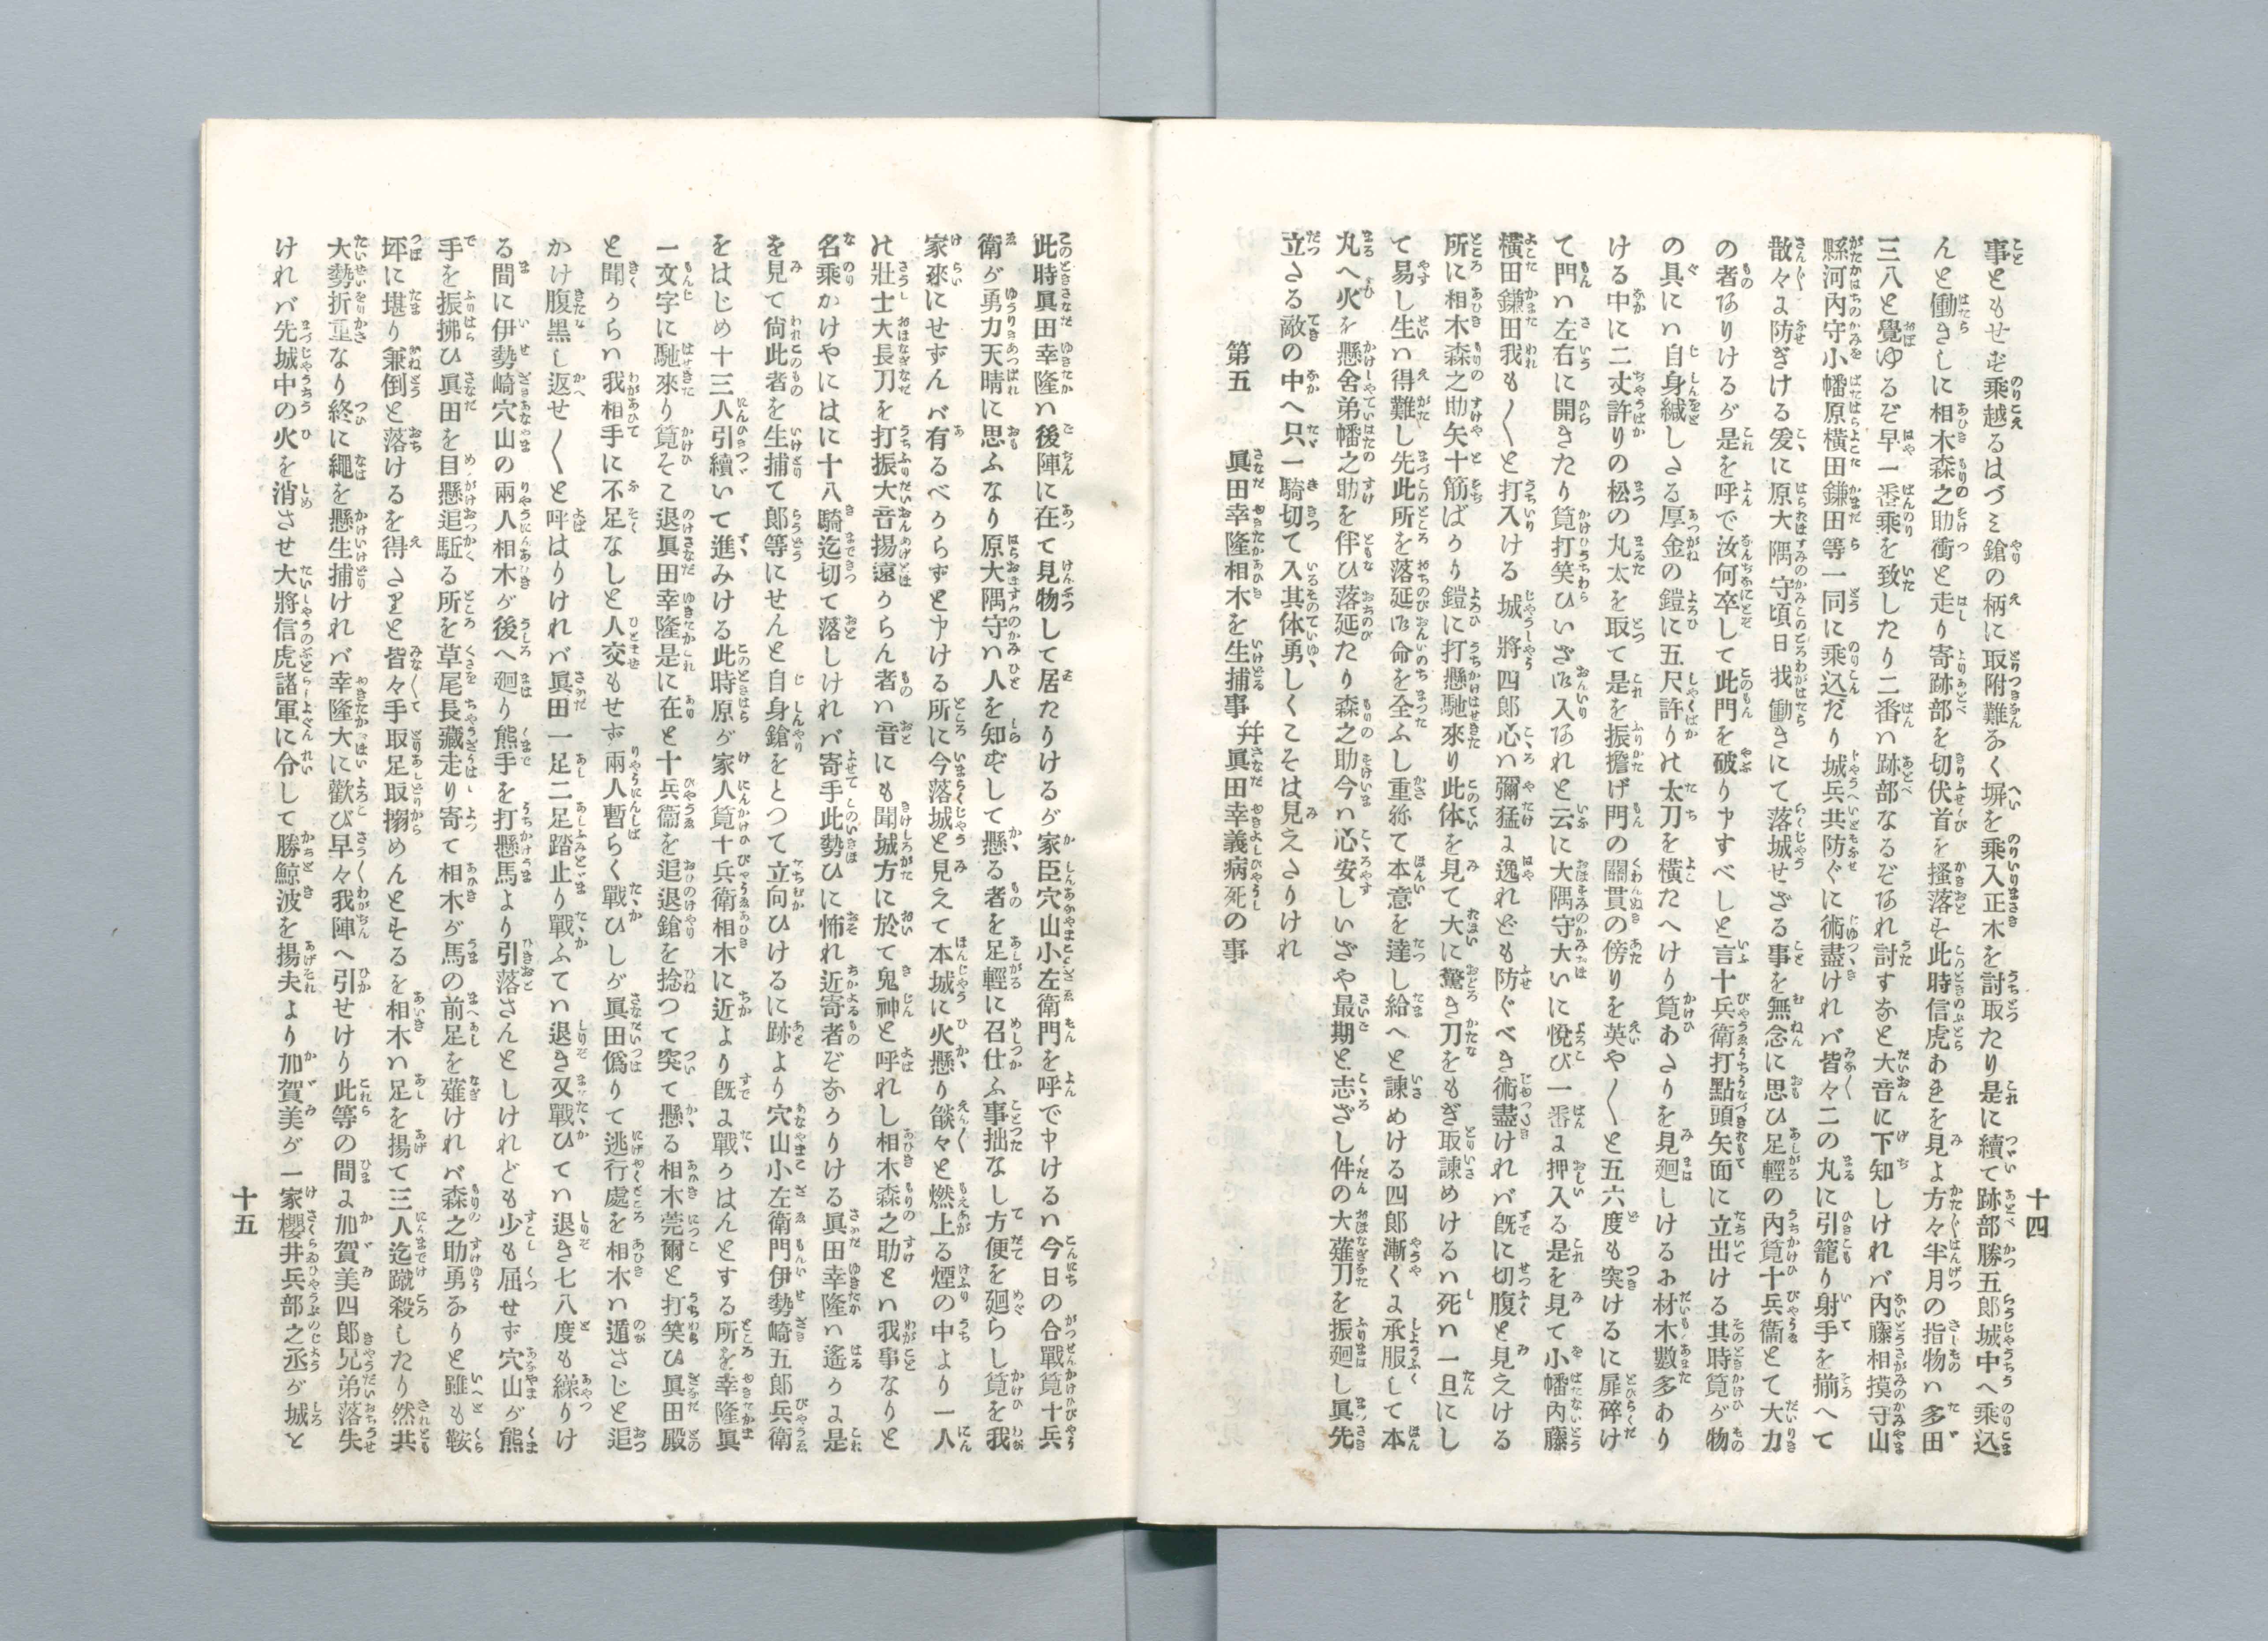 十四
事ともせず乗越るはづミ鎗の柄に取附難なく塀を乗入正木を討取たり是に續て跡部勝五郎城中へ乗込
んと働きしに相木森之助衝と走り寄跡部を切伏首を掻落す此時信虎あきを見よ方々半月の指物ハ多田
三八と覺ゆるぞ早一番乗を致したり二番ハ跡部なるぞあれ討すなと大音に下知しけれバ內藤相摸守山
縣河內守小幡原横田鎌田等一同に乘込だり城兵共防ぐに術盡けれバ皆々二の丸に引籠り射手を揃へて
散々に防ぎける爰に原大隅守頃日我働きにて落城せざる事を無念に思ひ足輕の內筧十兵衞とて大力
の者ありけるが是を呼で汝何卒して此門を破り申すべしと言十兵衛打點頭矢面に立出ける其時筧が物
の具にハ自身縅しさる厚金の鎧に五尺許りの太刀を横たへけり筧あさりを見廻しけるお材木數多あり
ける中に二丈許りの松の丸太を取て是を振擔げ門の關貫の傍りを英や〱と五六度も突けるに扉碎け
て門ハ左右に開きたり筧打笑ひいざ御入あれと云に大隅守大いに悅び一番に押入る是を見て小幡內藤
横田鎌田我も〱と打入ける城將四郎心ハ彌猛に逸れども防ぐべき術盡けれバ旣に切腹と見えける
所に相木森之助矢十筋ばかり鎧に打懸馳來り此体を見て大に驚き刀をもぎ取諫めけるハ死ハ一旦にし
て易し生ハ得難し先此所を落延御命を全ふし重祢て本意を達し給へと諫めける四郎漸くに承服して本
丸へ火を懸舍弟幡之助を伴ひ落延たり森之助今ハ心安しいざや最期と志ざし件の大薙刀を振廻し眞先
立さる敵の中へ只一騎切て入其体勇ゝしくこそは見えさりけれ
第五　眞田幸隆相木を生捕事 幷 眞田幸義病死の事
此時眞田幸隆ハ後陣に在て見物して居たりけるが家臣穴山小左衛門を呼で申けるハ今日の合戰筧十兵
衛が勇力天晴に思ふなり原大隅守ハ人を知ずして懸る者を足輕に召仕ふ事拙なし方便を廻らし筧を我
家來にせずんバ有るべからずと申ける所に今落城と見えて本城に火懸り燄々と燃上る煙の中より一人
の壯士大長刀を打振大音揚遠からん者ハ音にも聞城方に於て鬼神と呼れし相木森之助とハ我事なりと
名乘かけやにはに十八騎迄切て落しけれバ寄手此勢ひに怖れ近寄者ぞなかりける眞田幸隆ハ遙かに是
を見て尙此者を生捕て郎等にせんと自身鎗をとつて立向ひけるに跡より穴山小左衛門伊勢崎五郎兵衛
をはじめ十三人引續いて進みける此時原が家人筧十兵衛相木に近より旣に戰かはんとする所を幸隆眞
一文字に馳來り筧そこ退眞田幸隆是に在と十兵衞を追退鎗を捻つて突て懸る相木莞爾と打笑ひ眞田殿
と聞からハ我相手に不足なしと人交もせず兩人暫らく戰ひしが眞田僞りて逃行處を相木ハ遁さじと追
かけ腹黑し返せ〱と呼はりけれバ眞田一足二足踏止り戰ふてハ退き又戰ひてハ退き七八度も繰りけ
る間に伊勢崎穴山の兩人相木が後へ廻り熊手を打懸馬より引落さんとしけれども少も屈せず穴山が熊
手を振拂ひ眞田を目懸追駈る所を草尾長藏走り寄て相木が馬の前足を薙けれバ森之助勇なりと雖も鞍
坪に堪り兼倒と落けるを得さりと皆々手取足取搦めんとするを相木ハ足を揚て三人迄蹴殺したり然共
大勢折重なり終に繩を懸生捕けれバ幸隆大に歡び早々我陣へ引せけり此等の間に加賀美四郎兄弟落失
けれバ先城中の火を消させ大將信虎諸軍に令して勝鯨波を揚夫より加賀美が一家櫻井兵部之丞が城と
十五